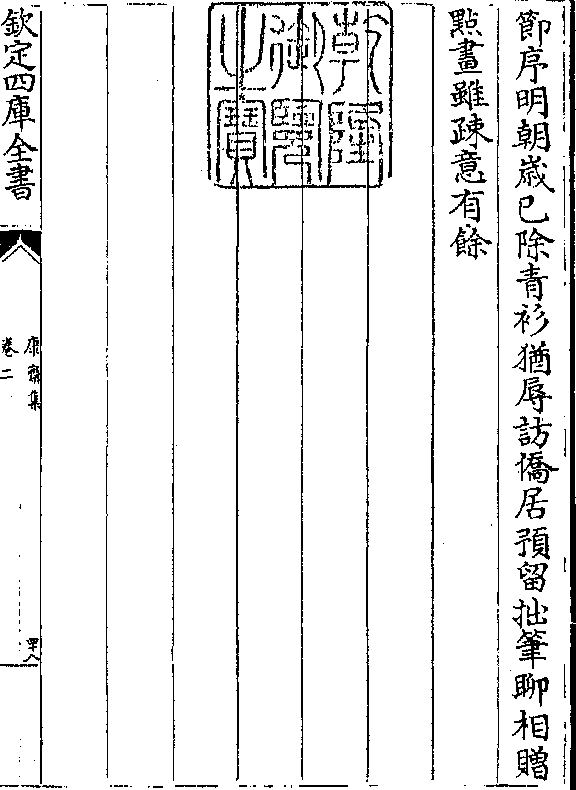 節序明朝歳已除青衫猶辱訪僑居預留拙筆聊相贈
點畫雖疎意有餘
乾隆御覽之寶
欽定四庫全書
康齋集
卷二
四八